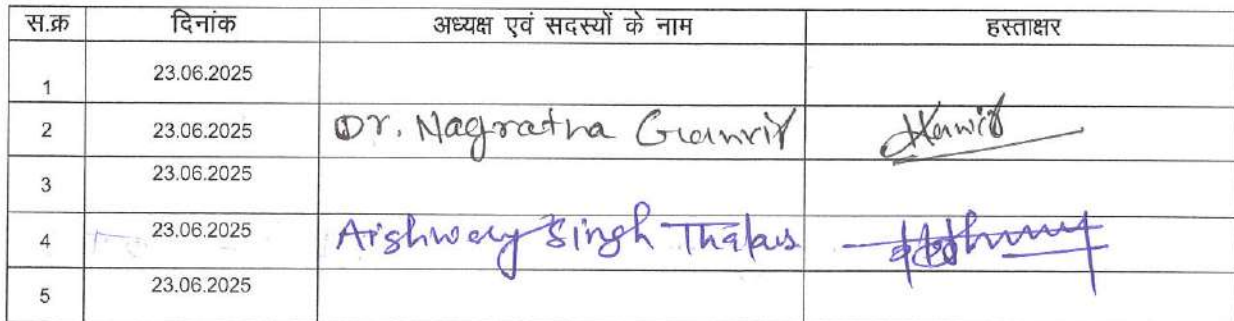 स.क्र दिनांक अध्यक्ष एवं सदस्यों के नाम हस्ताक्षर
1 23.06.2025
2 23.06.2025 Dr. Nagratna
3 23.06.2025
4 23.06.2025 Singh
5 23.06.2025